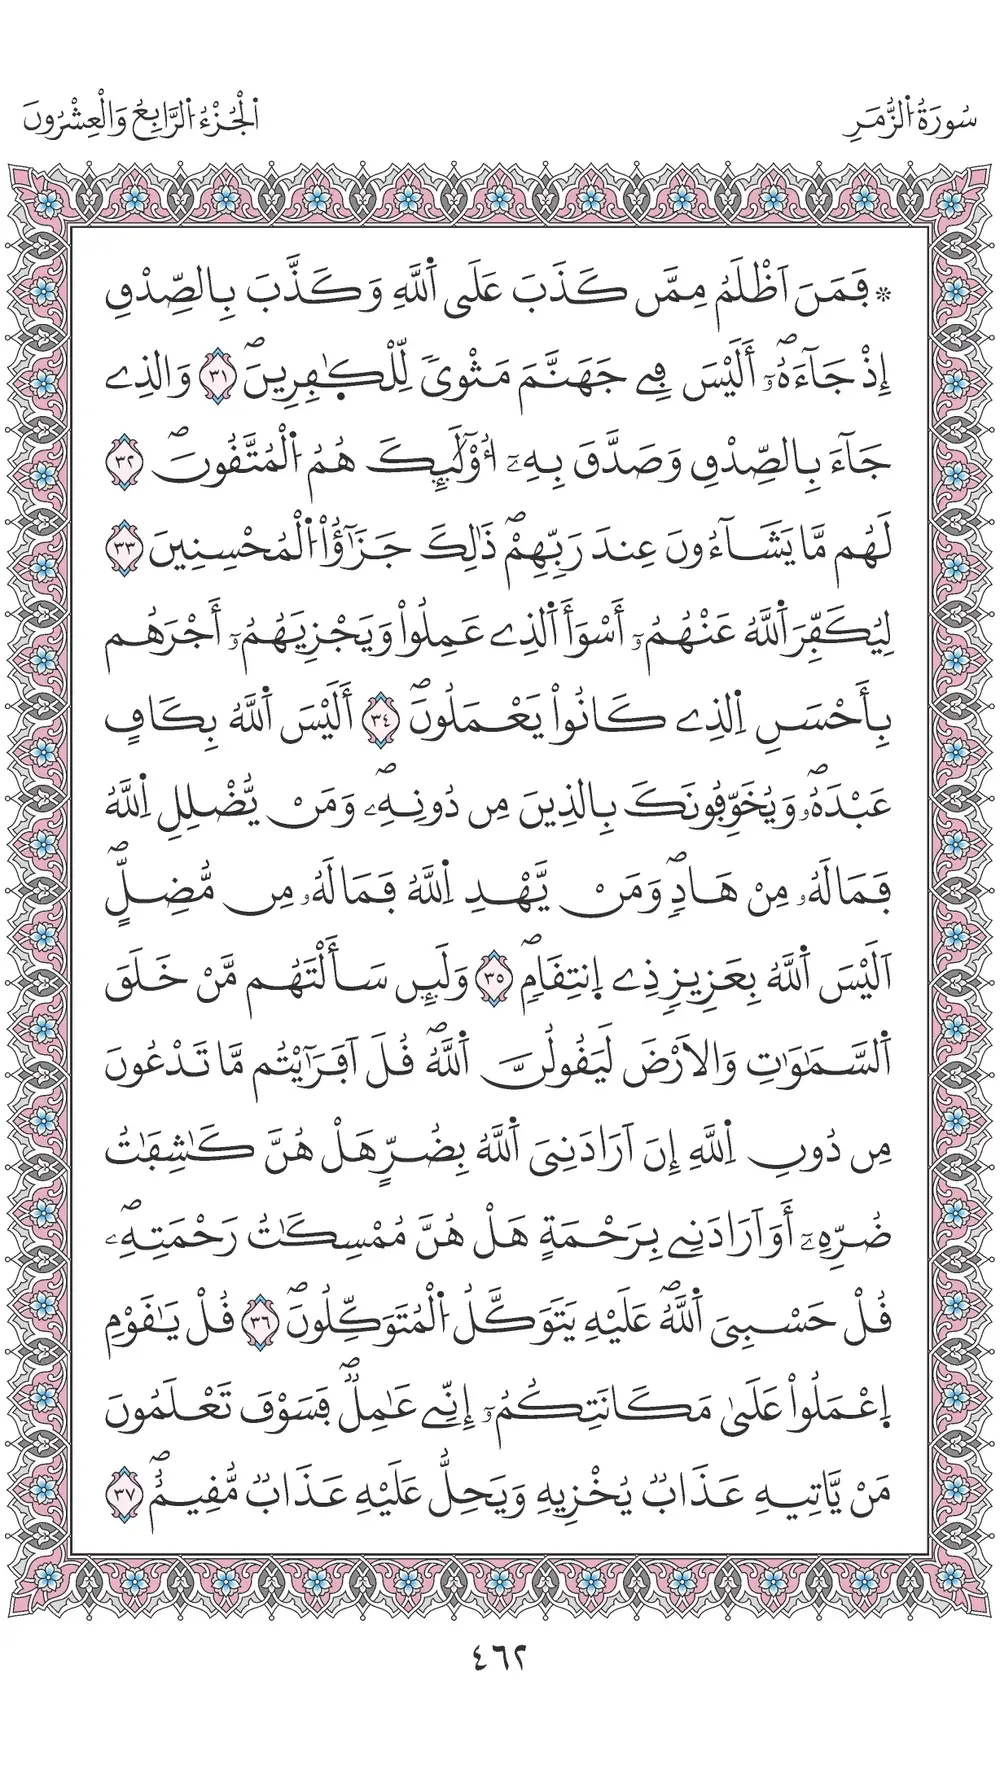 سُورَةُ الزُّمَرِ
الْجُزْءُ الرَّابِعُ وَالْعِشْرُونَ
* فَمَنَ اَظْلَمُ مِمَّن كَذَبَ عَلَى اَ۬للَّهِ وَكَذَّبَ بِالصِّدْقِ
إِذْ جَآءَهُۥٓۖ أَلَيْسَ فِے جَهَنَّمَ مَثْويٗ لِّلْكٰ۪فِرِينَۖ ٣١ وَالذِے
جَآءَ بِالصِّدْقِ وَصَدَّقَ بِهِۦٓ أُوْلَٰٓئِكَ هُمُ اُ۬لْمُتَّقُونَۖ ٣٢
لَهُم مَّا يَشَآءُونَ عِندَ رَبِّهِمْۖ ذَٰلِكَ جَزَٰٓؤُاْ اُ۬لْمُحْسِنِينَ ٣٣
لِيُكَفِّرَ اَ۬للَّهُ عَنْهُمُۥٓ أَسْوَأَ اَ۬لذِے عَمِلُواْ وَيَجْزِيَهُمُۥٓ أَجْرَهُم
بِأَحْسَنِ اِ۬لذِے كَانُواْ يَعْمَلُونَۖ ٣٤ أَلَيْسَ اَ۬للَّهُ بِكَافٍ
عَبْدَهُۥۖ وَيُخَوِّفُونَكَ بِالذِينَ مِن دُونِهِۦۖ وَمَنْ يُّضْلِلِ اِ۬للَّهُ
فَمَا لَهُۥ مِنْ هَادٖۖ وَمَنْ يَّهْدِ اِ۬للَّهُ فَمَا لَهُۥ مِن مُّضِلٍّۖ
اَلَيْسَ اَ۬للَّهُ بِعَزِيزٖ ذِے اِ۪نتِقَامٖۖ ٣٥ وَلَئِن سَأَلْتَهُم مَّنْ خَلَقَ
اَ۬لسَّمَٰوَٰتِ وَالَارْضَ لَيَقُولُنَّ اَ۬للَّهُۖ قُلَ اَفَرَٰٓيْتُم مَّا تَدْعُونَ
مِن دُونِ اِ۬للَّهِ إِنَ اَرَادَنِيَ اَ۬للَّهُ بِضُرٍّ هَلْ هُنَّ كَٰشِفَٰتُ
ضُرِّهِۦٓ أَوَ اَرَادَنِے بِرَحْمَةٍ هَلْ هُنَّ مُمْسِكَٰتُ رَحْمَتِهِۦۖ
قُلْ حَسْبِيَ اَ۬للَّهُۖ عَلَيْهِ يَتَوَكَّلُ اُ۬لْمُتَوَكِّلُونَۖ ٣٦ قُلْ يَٰقَوْمِ
اِ۪عْمَلُواْ عَلَىٰ مَكَانَتِكُمُۥٓ إِنِّے عَٰمِلٞۖ فَسَوْفَ تَعْلَمُونَ
مَنْ يَّاتِيهِ عَذَابٞ يُخْزِيهِ وَيَحِلُّ عَلَيْهِ عَذَابٞ مُّقِيمٌۖ ٣٧
٤٦٢